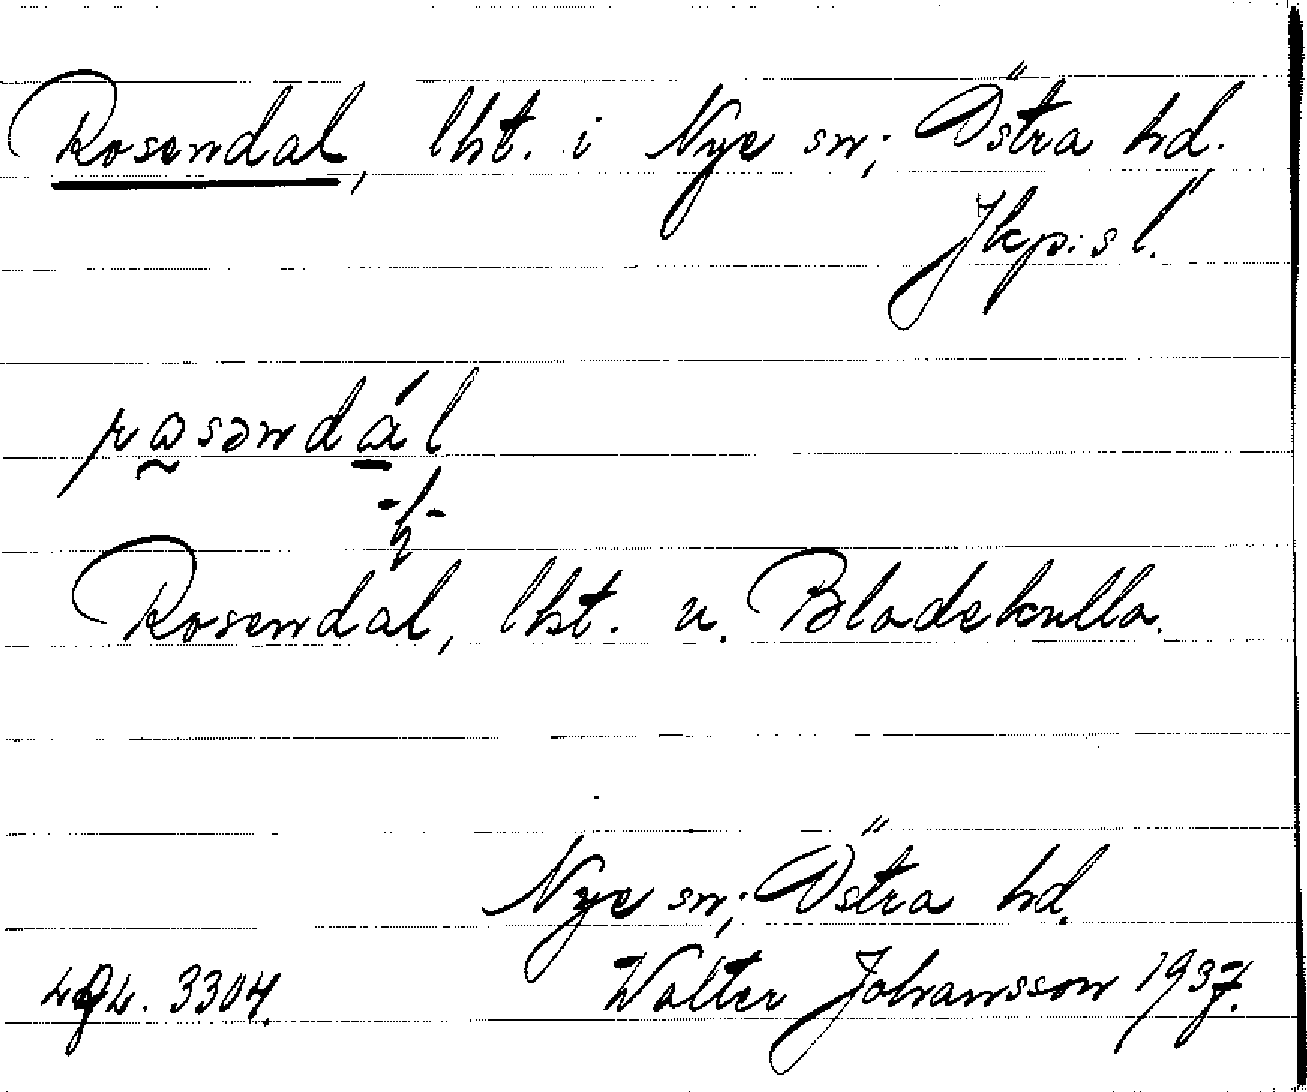 Rosendal, lht. i Nye sn; Östra hd.
Jkp:s l.
rosəndál
-ļ-
Rosendal, lht. u. Bladekulla.
Nye sn; Östra hd.
Walter Johansson 1937.
3304.